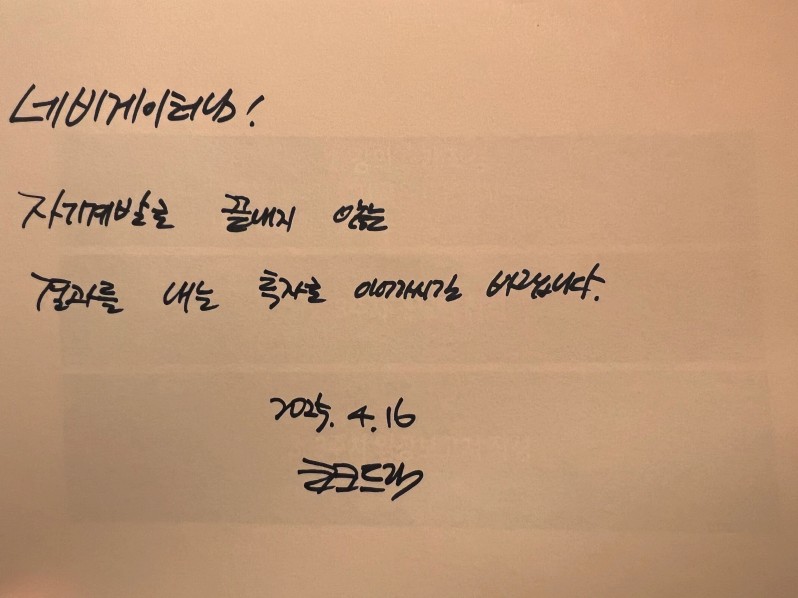 네비게이터님!
자기계발로 끝내지 않는
결과를 내는 투자로 이어가시길 바랍니다.
2025. 4. 16